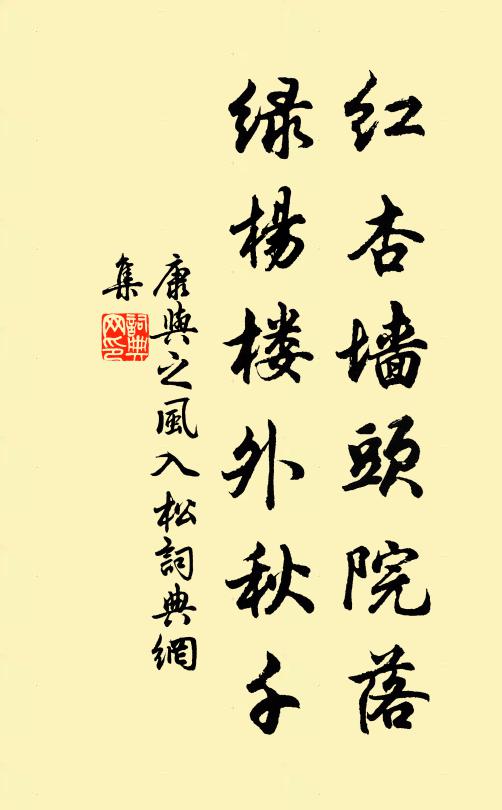 红杏墙頭院落
绿楊楼外秋千
康與之風入松詞典網
集
詞典
网印